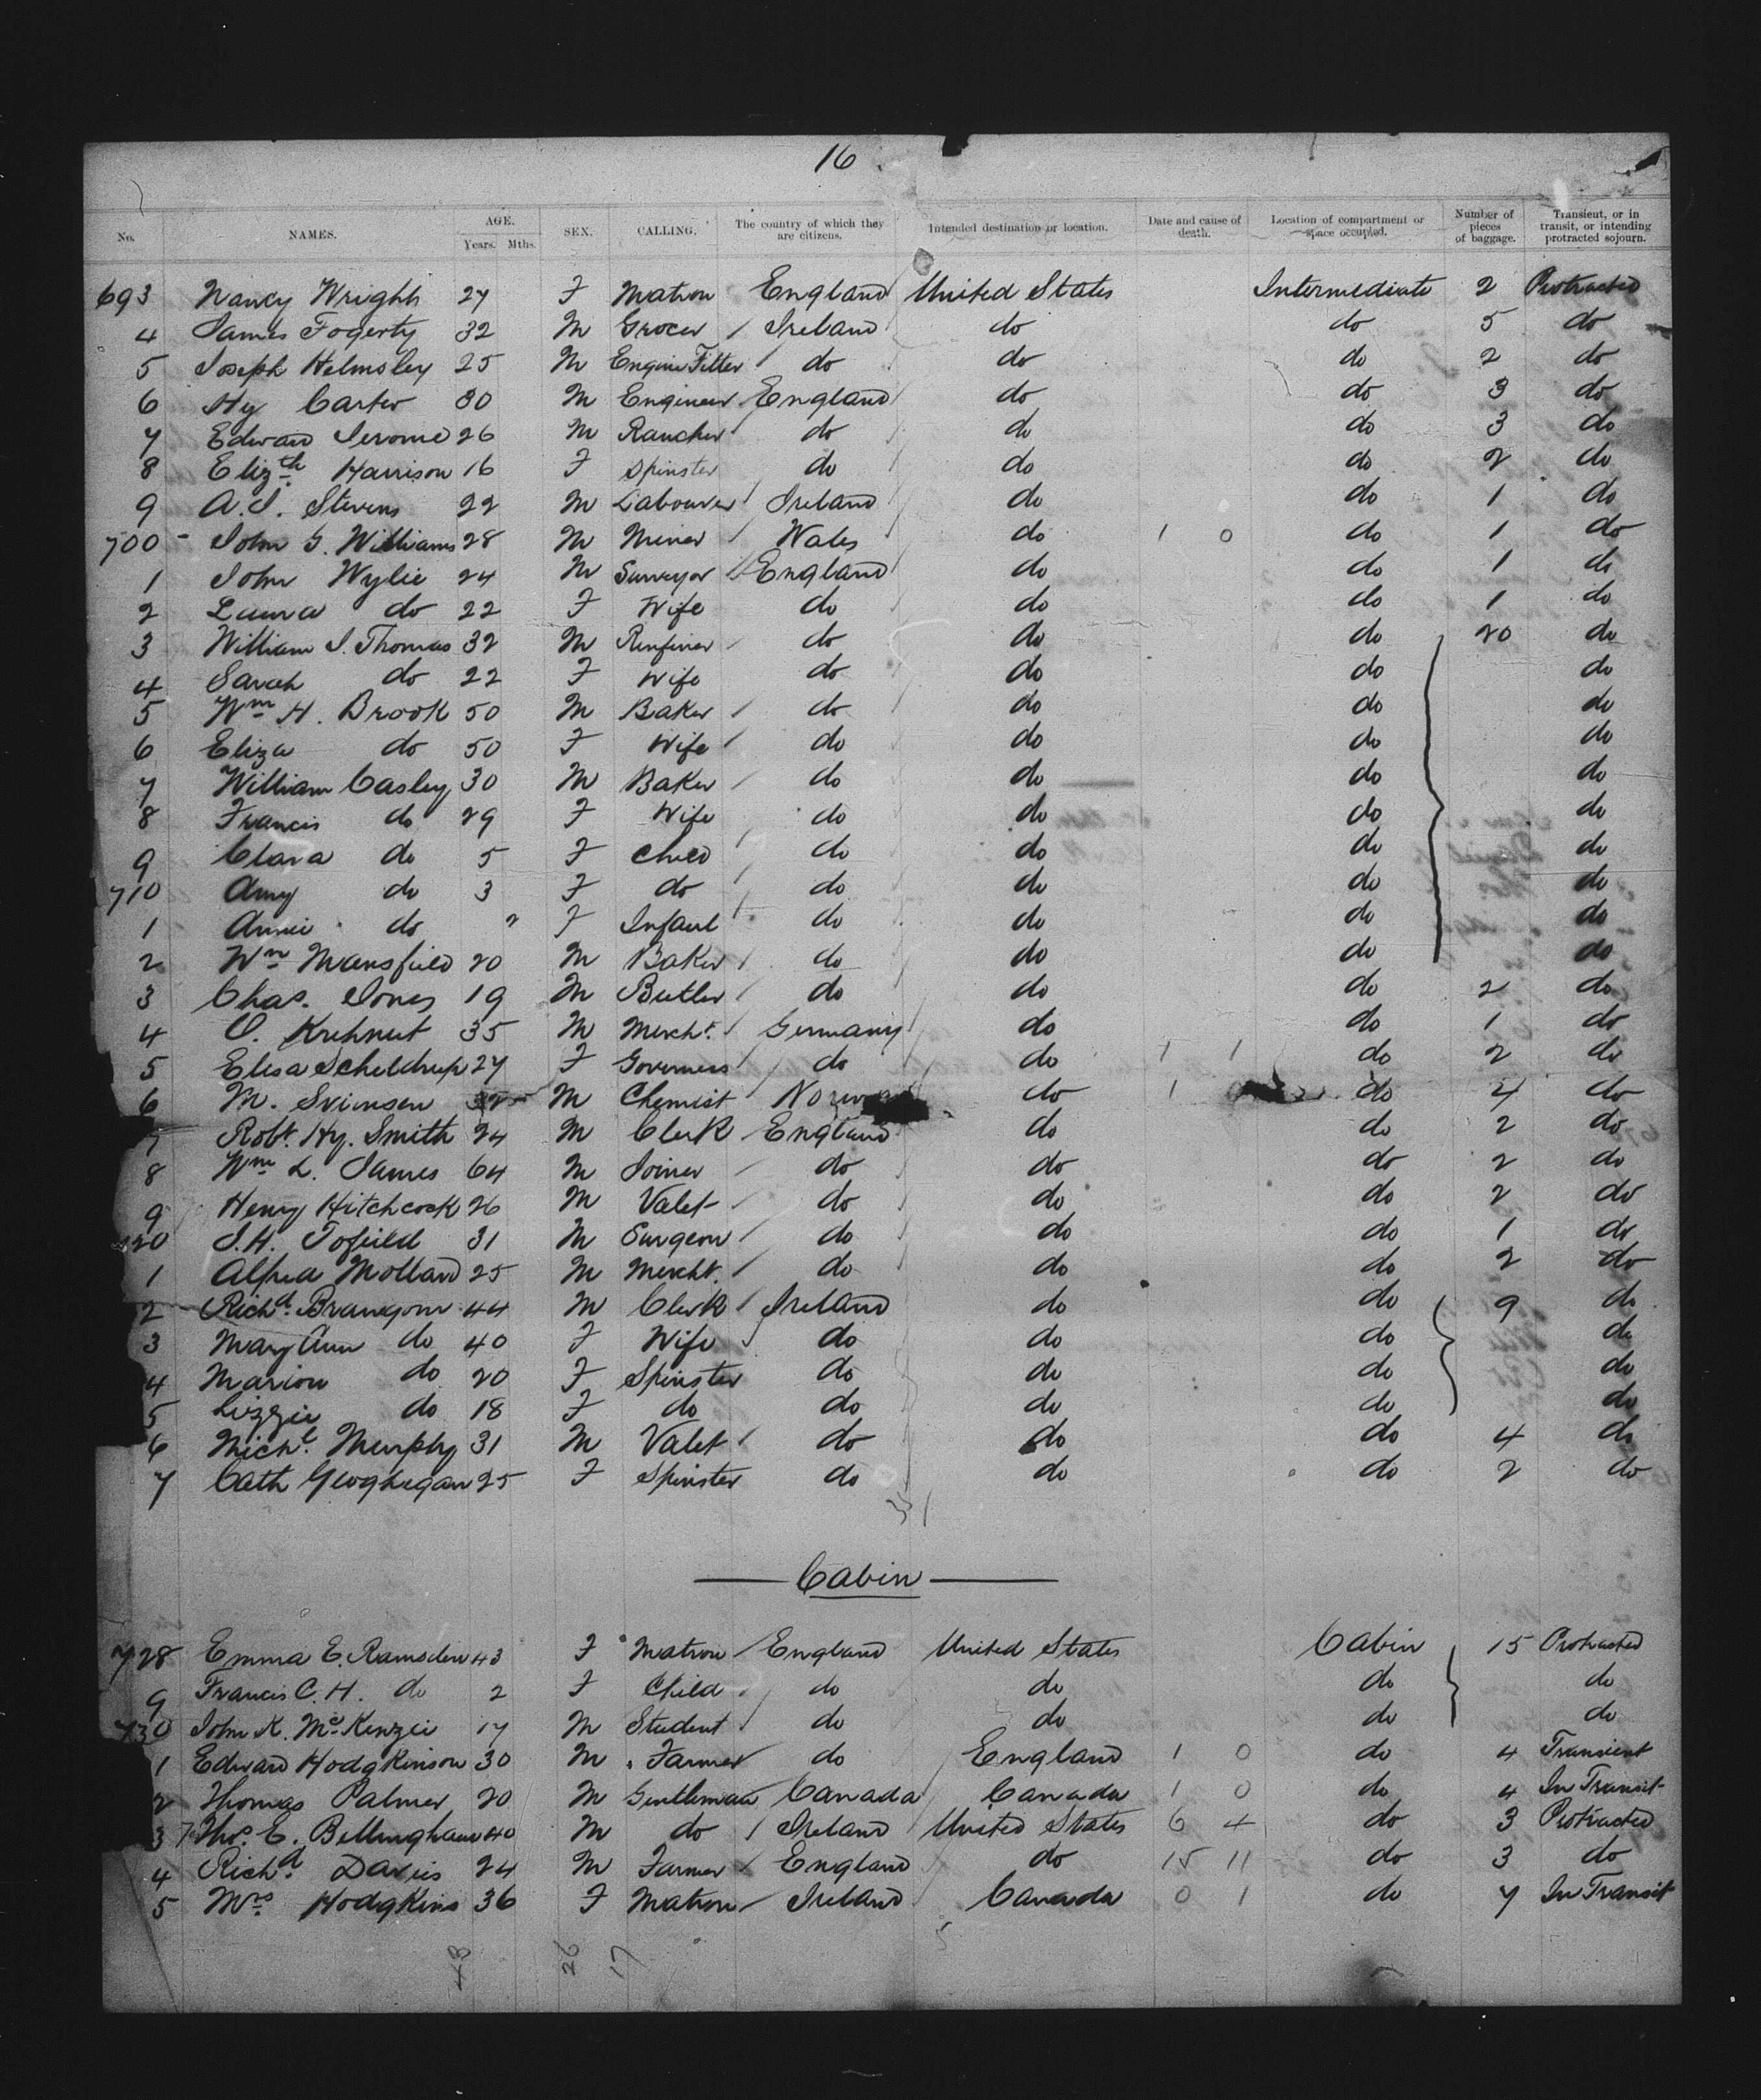 16
No. NAMES. AGE. Years. Mths. SEX. CALLING. The country of which they are citizens. Intended destination or location. Date and cause of death. Location of compartment or space occupied. Number of pieces of baggage. Transient, or in transit, or intending protracted sojourn.
693 Nancy Wright 27 F Matron England United States Intermediate 2 Protracted
4 James Fogerty 32 M Grocer Ireland do do 5 do
5 Joseph Helmsley 25 M Engine Fitter do do do 2 do
6 Hy Carter 30 M Engineer England do do 3 do
7 Edward Jerome 26 M Rancher do do do 3 do
8 Elizth Harrison 16 F Spinster do do do 2 do
9 A.J. Stevens 22 M Labourer Ireland do do 1 do
700 John G. Williams 28 M Miner Wales do 1 0 do 1 do
1 John Wylie 24 M Surveyor England do do 1 do
2 Laura do 22 F Wife do do do 1 do
3 William J. Thomas 32 M do do do 20 do
4 Sarah do 22 F Wife do do do do
5 Wm H. Brook 50 M Baker do do do do
6 Eliza do 50 F Wife do do do do
7 William Casley 30 M Baker do do do do
8 Francis do 29 F Wife do do do do
9 Clara do 5 F Child do do do do
710 Amy do 3 F do do do do do
1 Annie do 2 F Infant do do do do
2 Wm Mansfield 20 M Baker do do do do
3 Chas. Jones 19 M Butler do do do 2 do
4 O. 35 M Mercht. Germany do do 1 do
5 Elisa Scheldrup 27 F Governess do do 1 1 do 2 do
6 M. Svensen M Chemist do 1 do 4 do
7 Robt. Hy. Smith 24 M Clerk England do do 2 do
8 Wm L. James 64 M Joiner do do do 2 do
9 Henry Hitchcock 26 M Valet do do do 2 do
20 J.H. Tofield 31 M Surgeon do do do 1 do
1 Alfred Mollard 25 M Mercht. do do do 2 do
2 Richd. 44 M Clerk Ireland do do 9 do
3 Mary Ann do 40 F Wife do do do do
4 Marion do 20 F Spinster do do do do
5 Lizzie do 18 F do do do do do
6 Michl. Murphy 31 M Valet do do do 4 do
7 Cath Geoghegan 25 F Spinster do do do 2 do
Cabin
728 Emma E. Ramsden 43 F Matron England United States Cabin 15 Protracted
9 Francis C. H. do 2 F Child do do do do
730 John K. McKenzie 17 M Student do do do do
1 Edward Hodgkinson 30 M Farmer do England 1 0 do 4 Transient
2 Thomas Palmer 20 M Gentleman Canada Canada 1 0 do 4 In Transit
3 Thos. E. Bellingham 40 M do Ireland United States 6 4 do 3 Protracted
4 Richd Davies 24 M Farmer England do 15 11 do 3 do
5 Mrs Hodgkins 36 F Matron Ireland Canada 0 1 do 7 In Transit
26 17